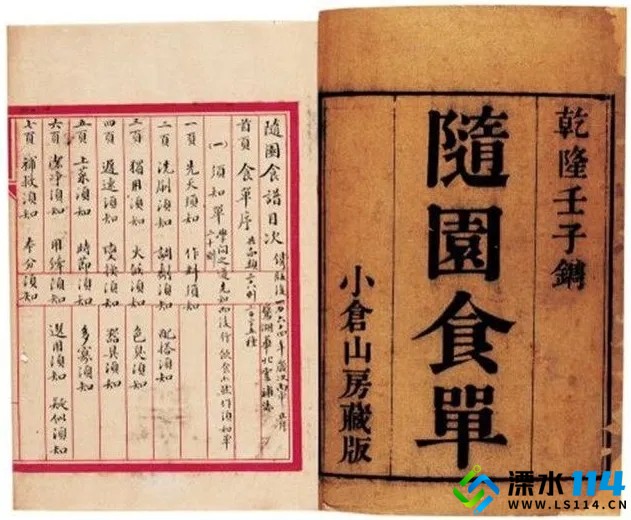 乾隆壬子鐫
隨園食單
小倉山房藏版
隨園食譜目次
首頁 食單序
(一) 須知單 學問之道先知而後行飲食亦然作須知單 二十則
一頁 先天須知 作料須知
二頁 洗刷須知 調劑須知 配搭須知
三頁 獨用須知 火候須知 色臭須知
四頁 遲速須知 變換須知 器具須知
五頁 上菜須知 時節須知 多寡須知
六頁 潔淨須知 用縴須知 選用須知 疑似須知
七頁 補救須知 本分須知
溧水114
WWW.LS114.CN